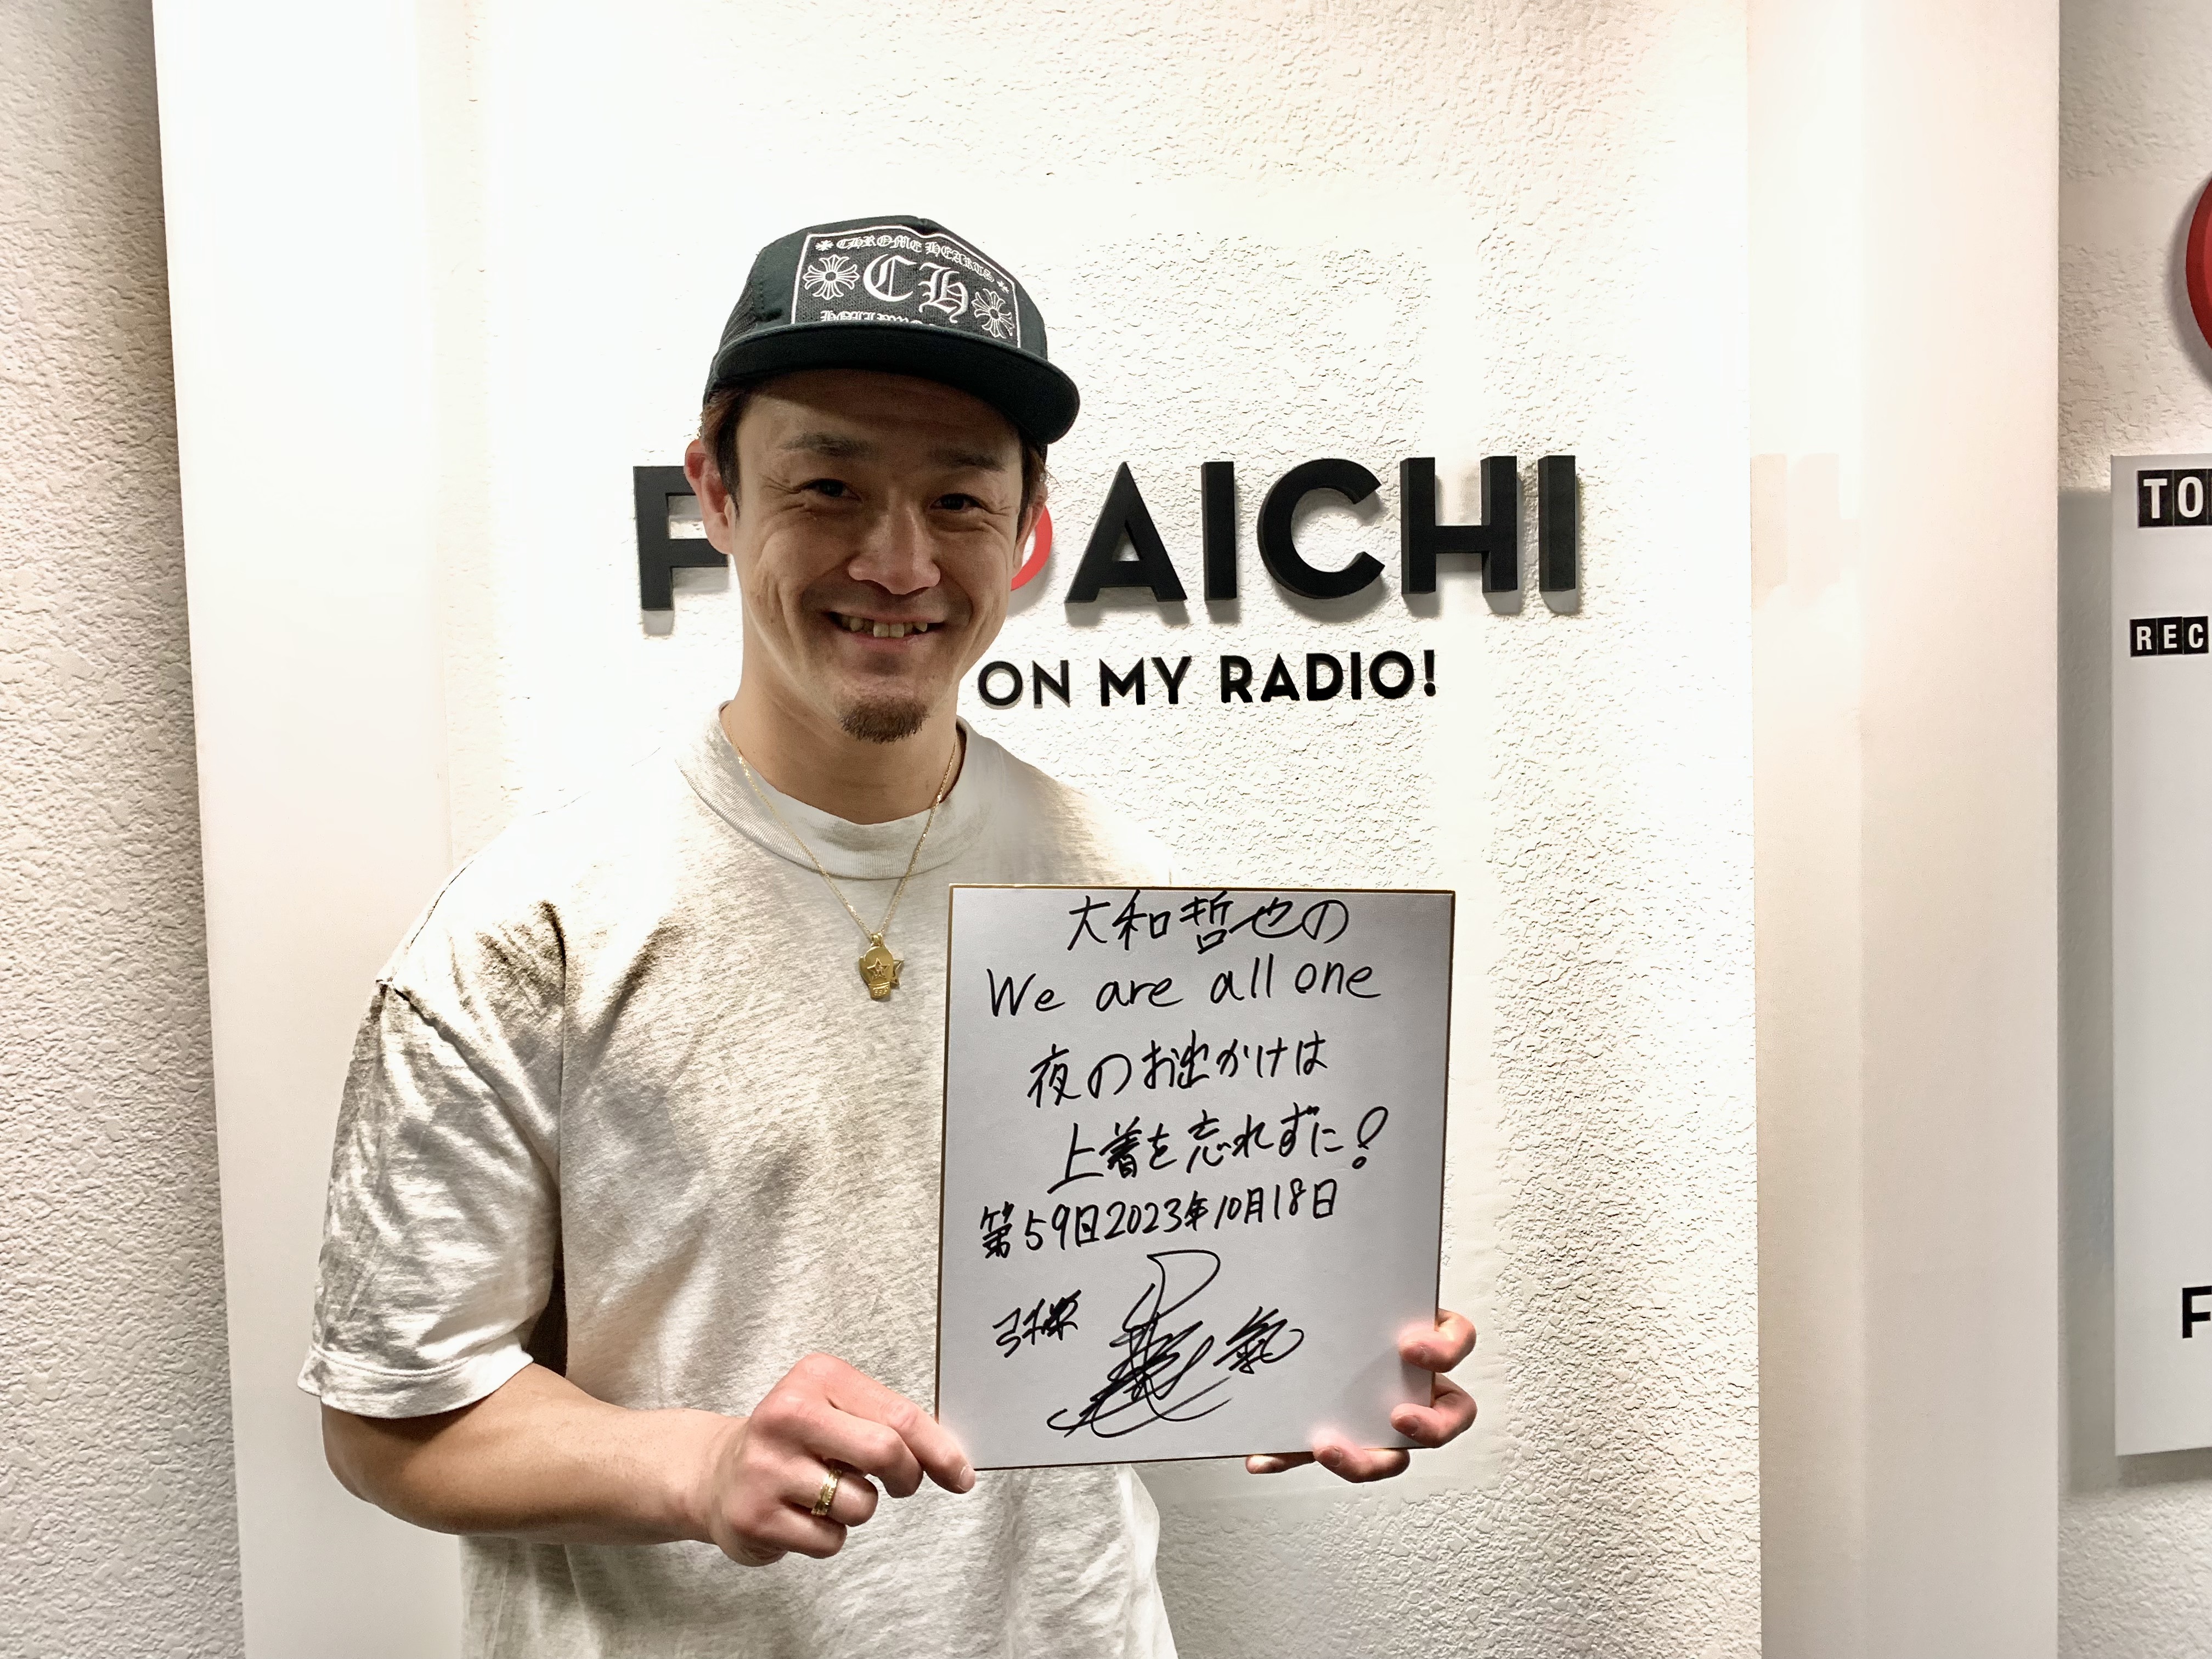 CHROME HEARTS
CH
F AICHI
ON MY RADIO!
TO
REC
大和哲也の
We are all one
夜のお出かけは
上着を忘れずに!
第59回2023年10月18日
F